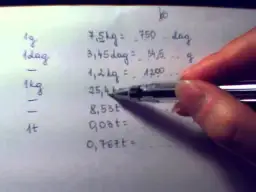 1g 7,5kg = 750 dag
1dag 3,45dag = 34,5 g
— 1,2kg = 1200 g
1kg 25,4
— 8,53t =
— 0,03t =
1t 0,767t =